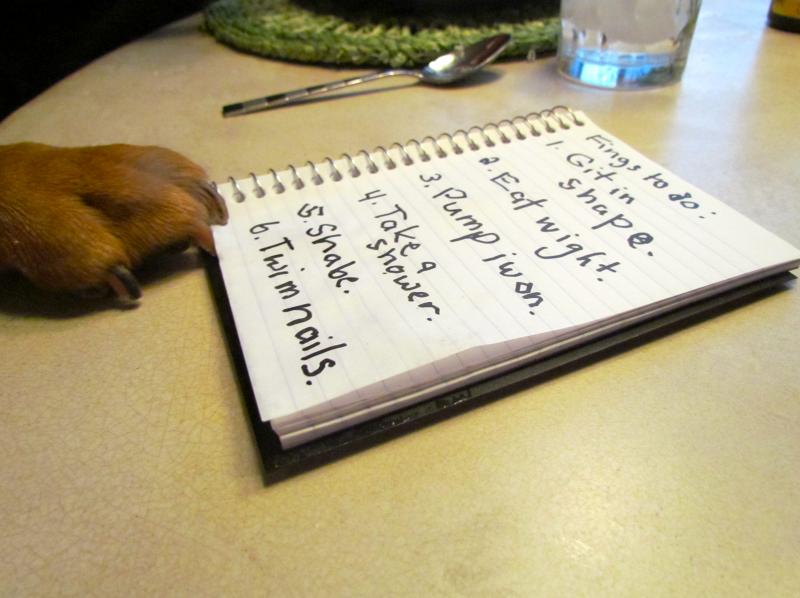 Fings to do:
1. Git in
shape.
2. Eat wight.
3. Pump iwon.
4. Take a
shower.
5. Shabe.
6. Twim nails.